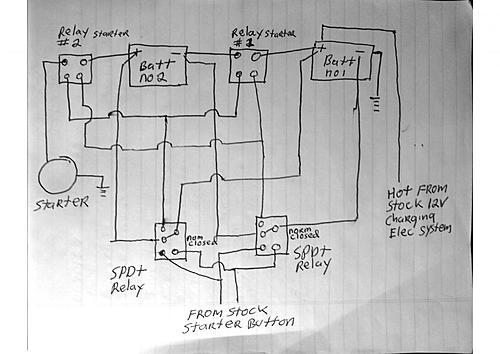 Relay starter
#2
Relay starter
#1
+ −
Batt
no 2
+ −
Batt
no 1
Starter
Hot From
Stock 12V
Charging
Elec System
nom
closed
norm
closed
SPDT
Relay
SPDT
Relay
From Stock
Starter Button